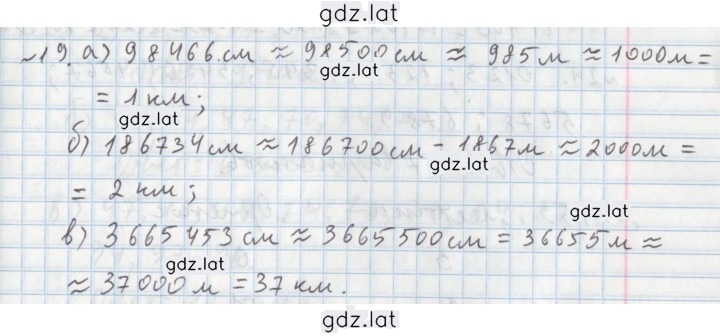 gdz.lat
№19. а) 98466 см ≈ 98500 см ≈ 985 м ≈ 1000 м =
gdz.lat
= 1 км;
gdz.lat
б) 186734 см ≈ 186700 см - 1867 м ≈ 2000 м =
gdz.lat
= 2 км;
gdz.lat
в) 3665453 см ≈ 3665500 см = 36655 м ≈
gdz.lat
≈ 37000 м = 37 км.
gdz.lat